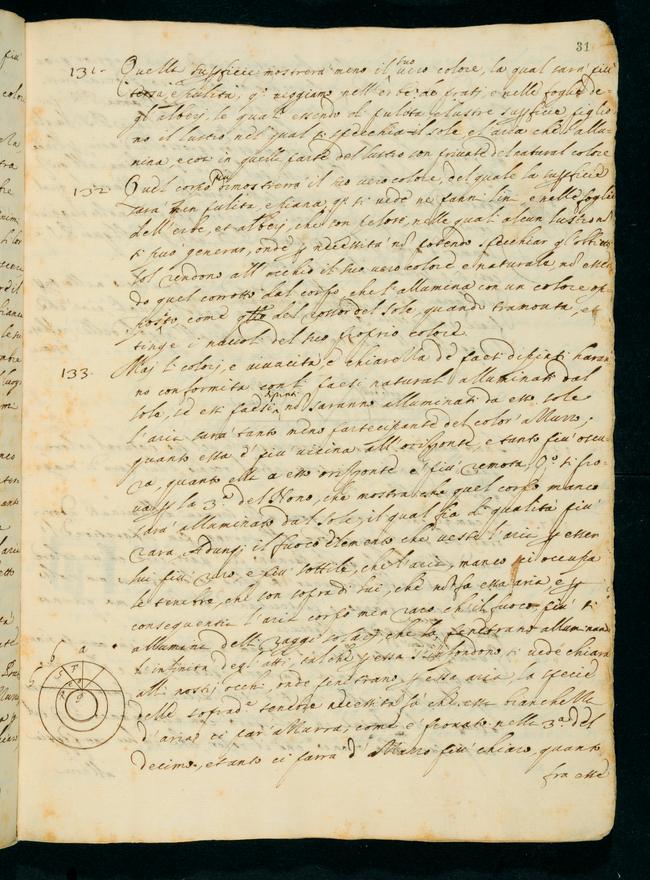 31
131. Quella suficie mostrerà meno il suo vero colore, la qual sarà più
tersa e pulita, qº veggiamo nell'erbe de prati, e nelle foglie de-
gl'albori, le qual' essendo di pulita e lustre suficie piglio
no il lustro nel qual si specchia il sole, e l'aria che l'allu-
mina, e così in quella parte del lustro son private del natural colore
132 Quel corpo più dimostrerà il suo vero colore, del quale la suficie
sarà men pulita e piana, qº si vede ne panni lini, e nelle foglie
dell'erbe, et alberi, che son pelose, nelle quali alcun lustro nō
si può generar, onde p necessità nō potendo specchiar gl'obbietti
sol rendono all'occhio il suo vero colore e naturale nō essen
do quel corrotto dal corpo che l'allumina con un colore op
posito, come qto del rossor del sole, quando tramonta, et
tinge i nuvoli del suo proprio colore
133. Mai li colori, e vivacità, e chiarezza de paesi dipinti haran
no conformità con li paesi naturali alluminati dal
sole, se eti paesi dipinti nō saranno alluminati da esso sole
l'aria sarà tanto meno partecipante del color azzurro,
quanto essa è più vicina all'orizzonte, e tanto più oscu
ra, quanto ella a esso orizzonte è più remota. Qº si pro-
va p la 3.ª del Nono, che mostra che quel corpo manco
sarà alluminato dal sole, il qual fia di qualità più
rara. Adunq; il fuoco elemento che veste l'aria p esser
lui più raro, e più sottile, che l'aria, manco ci occupa
le tenebre, che son sopra di lui, che nō fa essa aria e p
conseguentia l'aria corpo men raro ch'il fuoco, più si
allumina delli raggi solari che la penetrano alluminando
l'infinità degl'atti, che p essa s'infondono si vede chiara
alli nostri occhi, onde penetrano p essa aria la specie
delle sopradª tenebre necessità fà che essa bianchezza
d'aria ci par azzurra, come è provato nella 3.ª del
decimo, e tanto ci parrà d'Azzurro più chiaro, quanto
fra esse